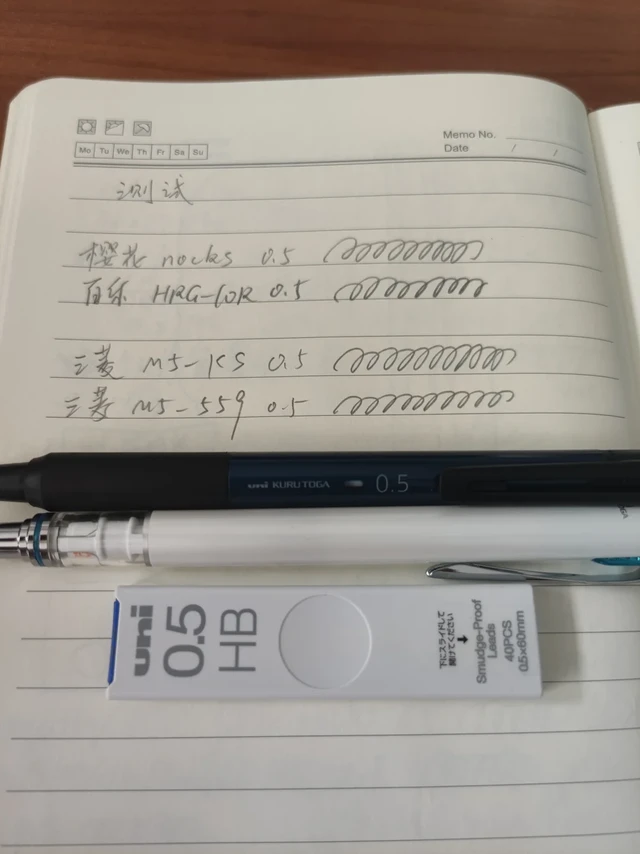 Memo No.
Mo Tu We Th Fr Sa Su
Date / /
测试
樱花 nocks 0.5
百乐 HRG-10R 0.5
三菱 M5-KS 0.5
三菱 M5-559 0.5
uni KURUTOGA 0.5
uni
0.5
HB
下にスライドして
開けてください
Smudge-Proof
Leads
40PCS
0.5×60mm